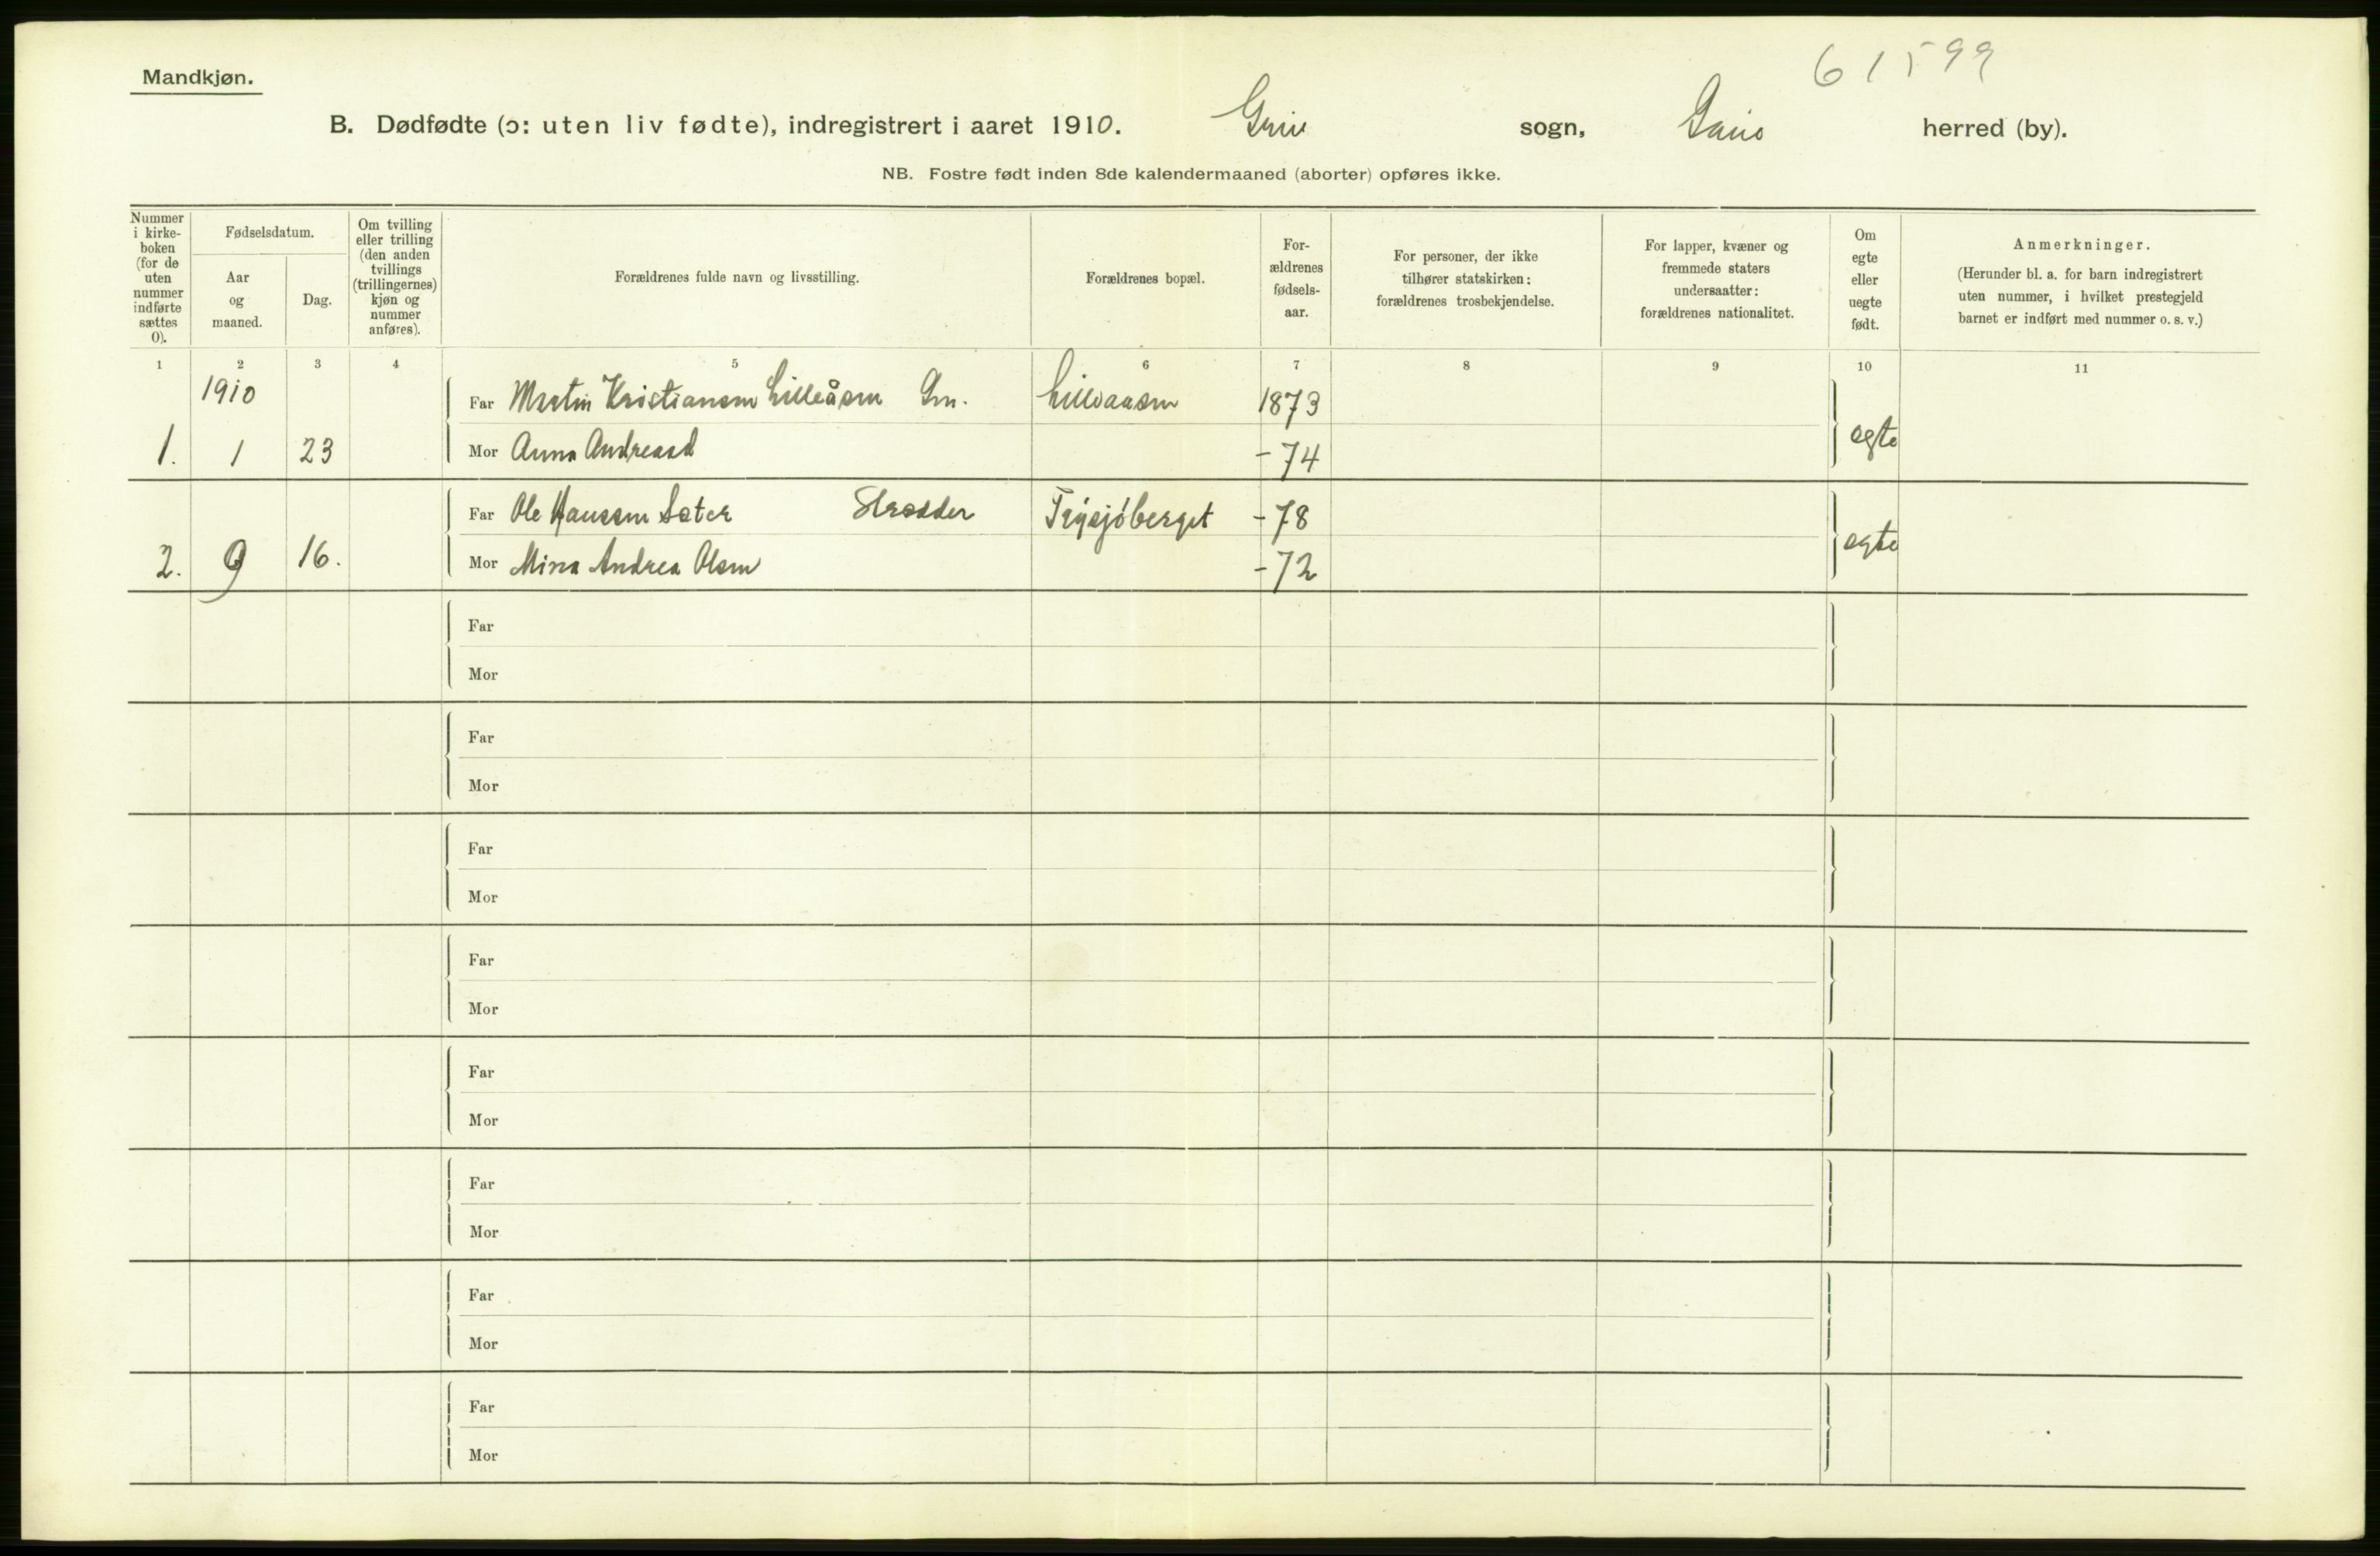 61599
Mandkjøn.
B. Dødfødte (ɔ: uten liv fødte), indregistrert i aaret 1910. Grue sogn, Grue herred (by).
NB. Fostre født inden 8de kalendermaaned (aborter) opføres ikke.
Nummer i kirke-boken (for de uten nummer indførte sættes 0).
Fødselsdatum.
Aar og maaned.
Dag.
Om tvilling eller trilling (den anden tvillings (trillingernes) kjøn og nummer anføres).
Forældrenes fulde navn og livsstilling.
Forældrenes bopæl.
For-ældrenes fødsels-aar.
For personer, der ikke tilhører statskirken: forældrenes trosbekjendelse.
For lapper, kvæner og fremmede staters undersaatter: forældrenes nationalitet.
Om egte eller uegte født.
Anmerkninger.
(Herunder bl. a. for barn indregistrert uten nummer, i hvilket prestegjeld barnet er indført med nummer o. s. v.)
1 2 3 4 5 6 7 8 9 10 11
1910
Far Martin Kristiansen Lilleåsen Gm. Lilleaasen 1873
1. 1 23 Mor Anna Andreasd - 74 egte
Far Ole Hanssen Sæter Skrædder Frysjøberget - 78
2. 9 16. Mor Mina Andrea Olsen - 72 egte
Far
Mor
Far
Mor
Far
Mor
Far
Mor
Far
Mor
Far
Mor
Far
Mor
Far
Mor